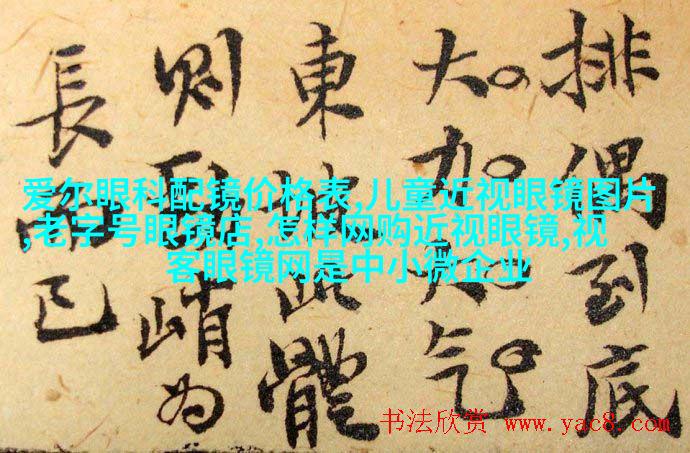 排偶到底
大加大气
東坡此體
則峭为
長而已
爱尔眼科配镜价格表,儿童近视眼镜图片
,老字号眼镜店,怎样网购近视眼镜,视
客眼镜网是中小微企业
书法欣赏 www.yac8.com